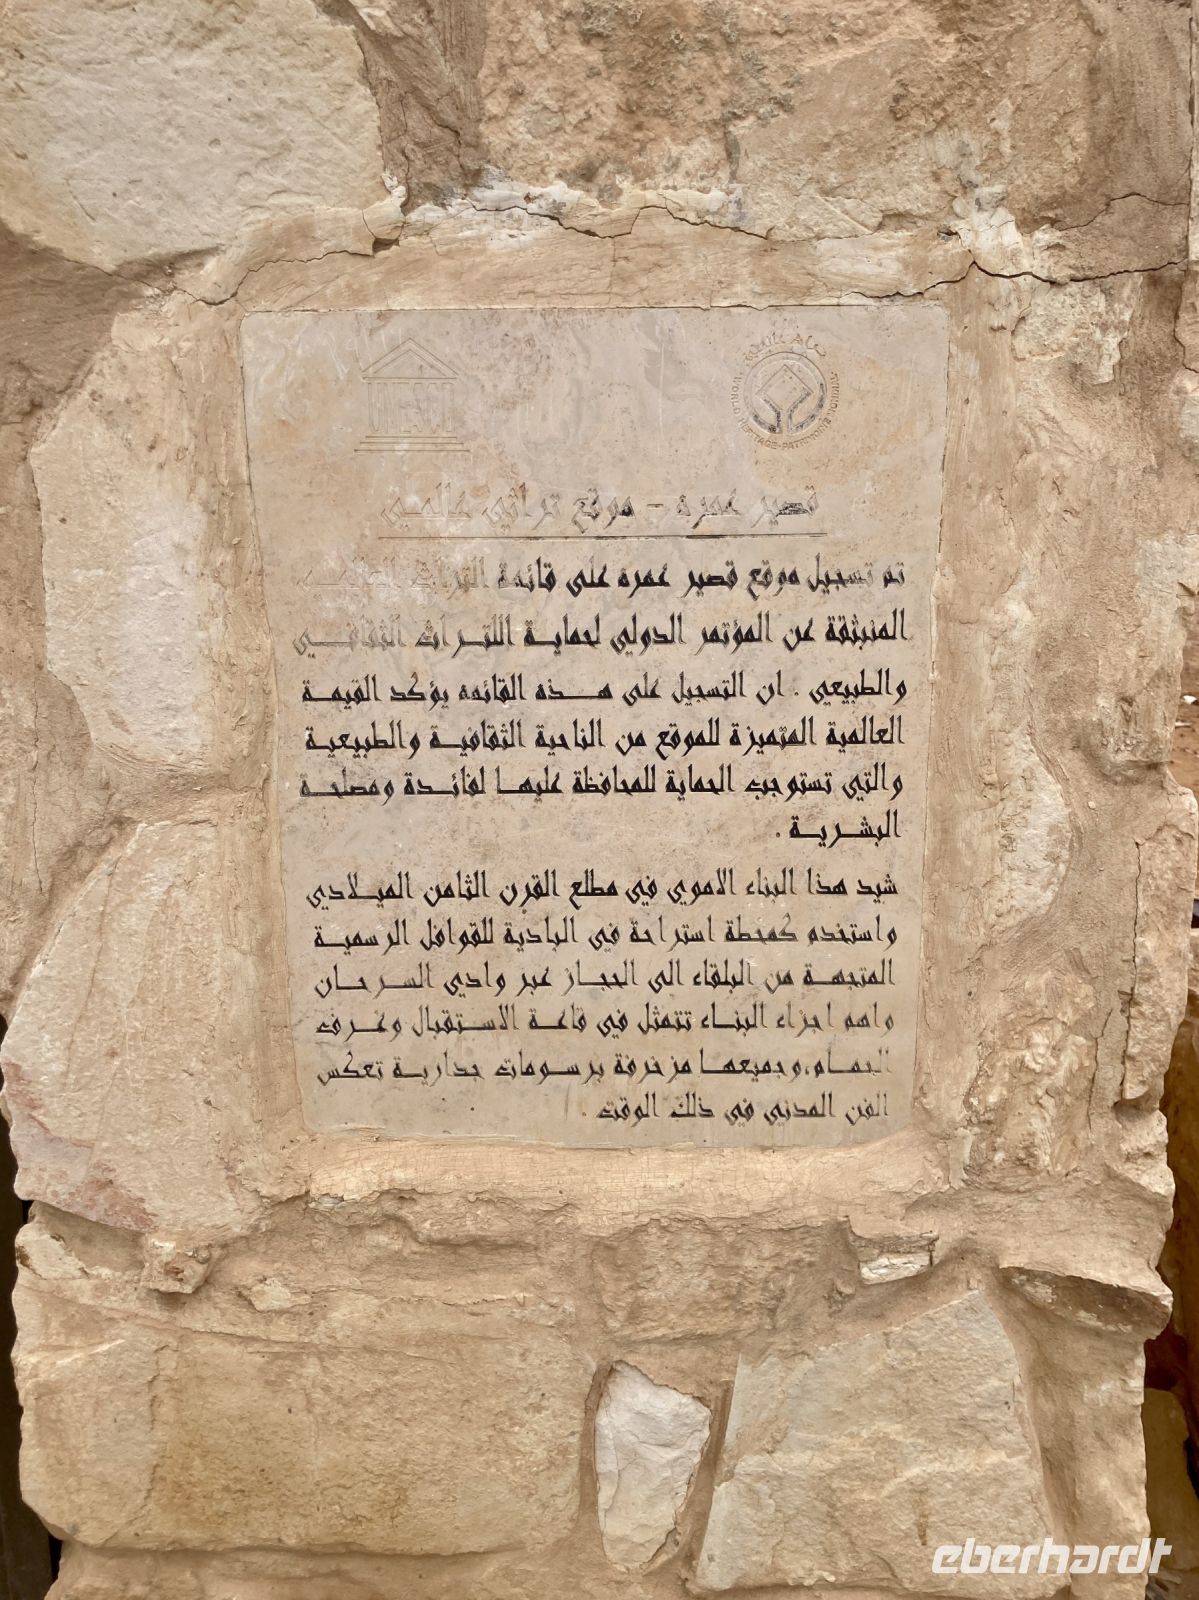 UNESCO
WORLD HERITAGE • PATRIMOINE MONDIAL
قصير عمره - موقع تراثي عالمي
تم تسجيل موقع قصير عمره على قائمة التراث العالمي
المنبثقة عن المؤتمر الدولي لحماية اللتراث الثقافي
والطبيعي . ان التسجيل على هذه القائمه يؤكد القيمة
العالمية المتميزة للموقع من الناحية الثقافية والطبيعية
والتي تستوجب الحماية للمحافظة عليها لفائدة ومصلحة
البشرية .
شيد هذا البناء الاموي في مطلع القرن الثامن الميلادي
واستخدم كمحطة استراحة في البادية للقوافل الرسمية
المتجهة من البلقاء الى الحجاز عبر وادي السرحان
واهم اجزاء البناء تتمثل في قاعة الاستقبال وغرف
الحمام،وجميعها مزخرفة برسومات جدارية تعكس
الفن المدني في ذلك الوقت .
eberhardt